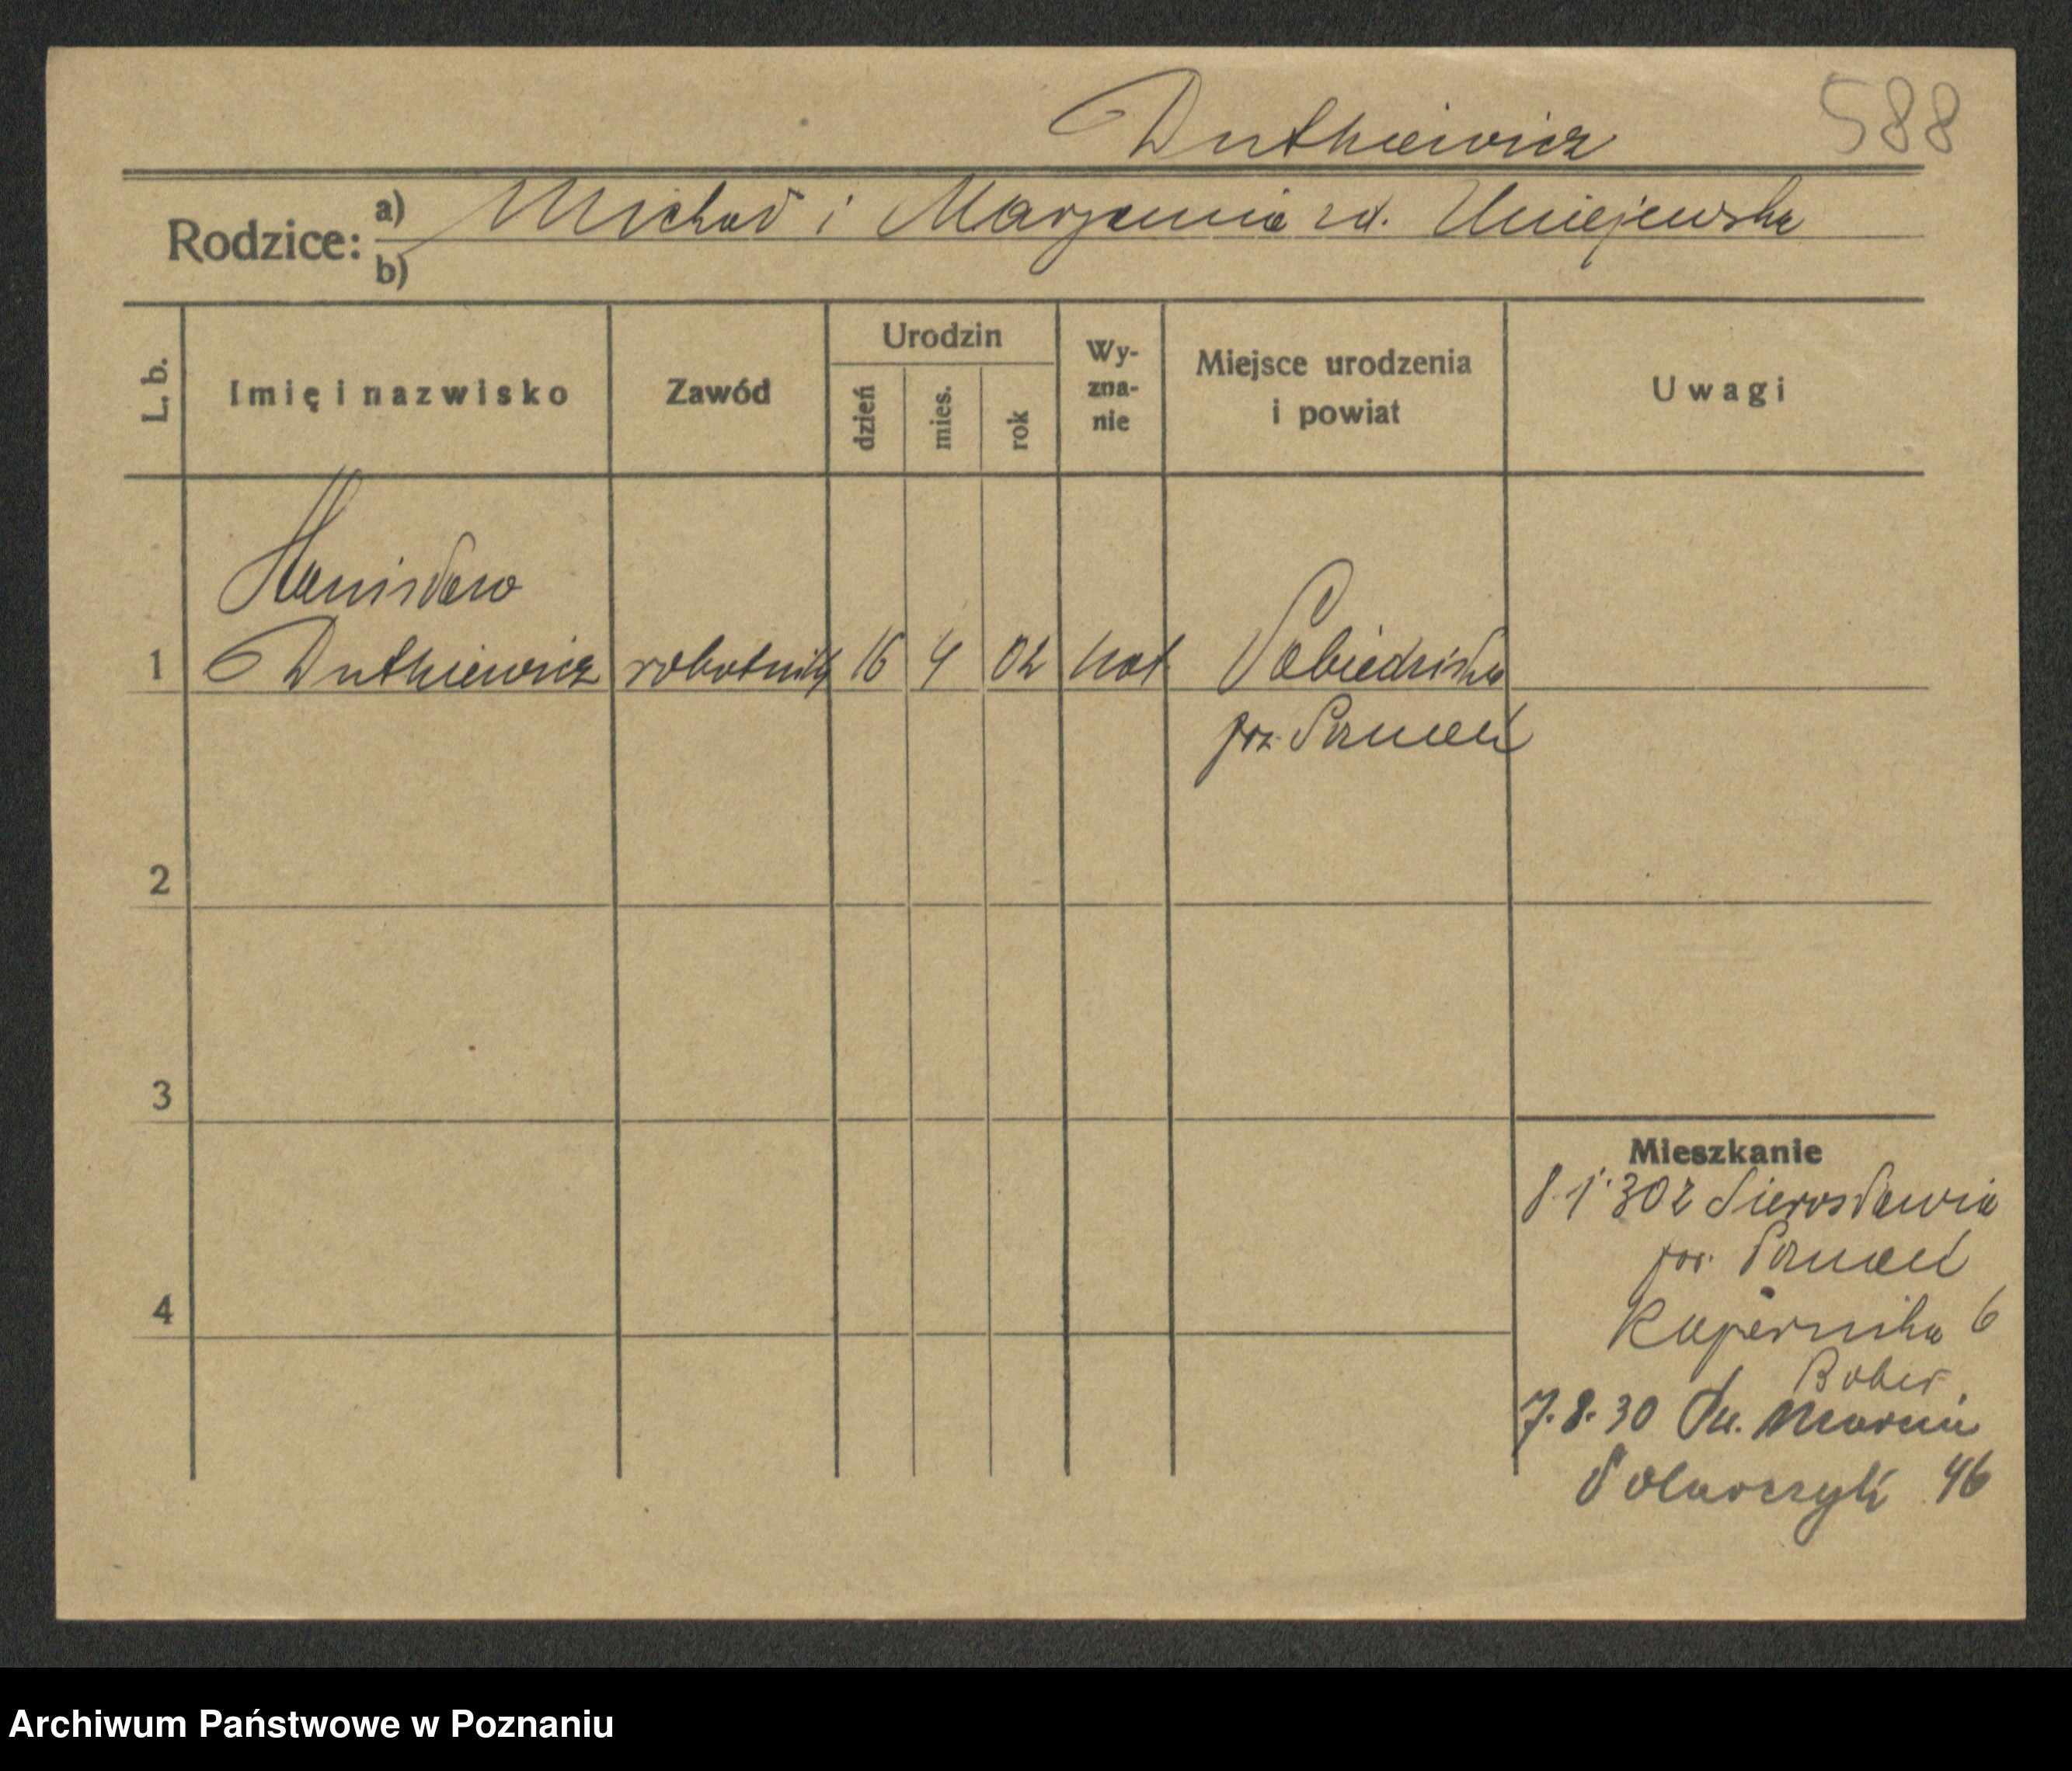 Dutkiewicz
588
Rodzice: a) b) Michał i Marjanna zd. Uniejewska
L. b.
Imię i nazwisko
Zawód
Urodzin
dzień
mies.
rok
Wy-
zna-
nie
Miejsce urodzenia
i powiat
Uwagi
Stanisław
1 Dutkiewicz robotnik 16 4 02 kat Pobiedziska
Poznań
2
3
4
Mieszkanie
8.1.30 z Sierosławia
Poznań
Kopernika 6
7.8.30 Św. Marcin
46
Archiwum Państwowe w Poznaniu